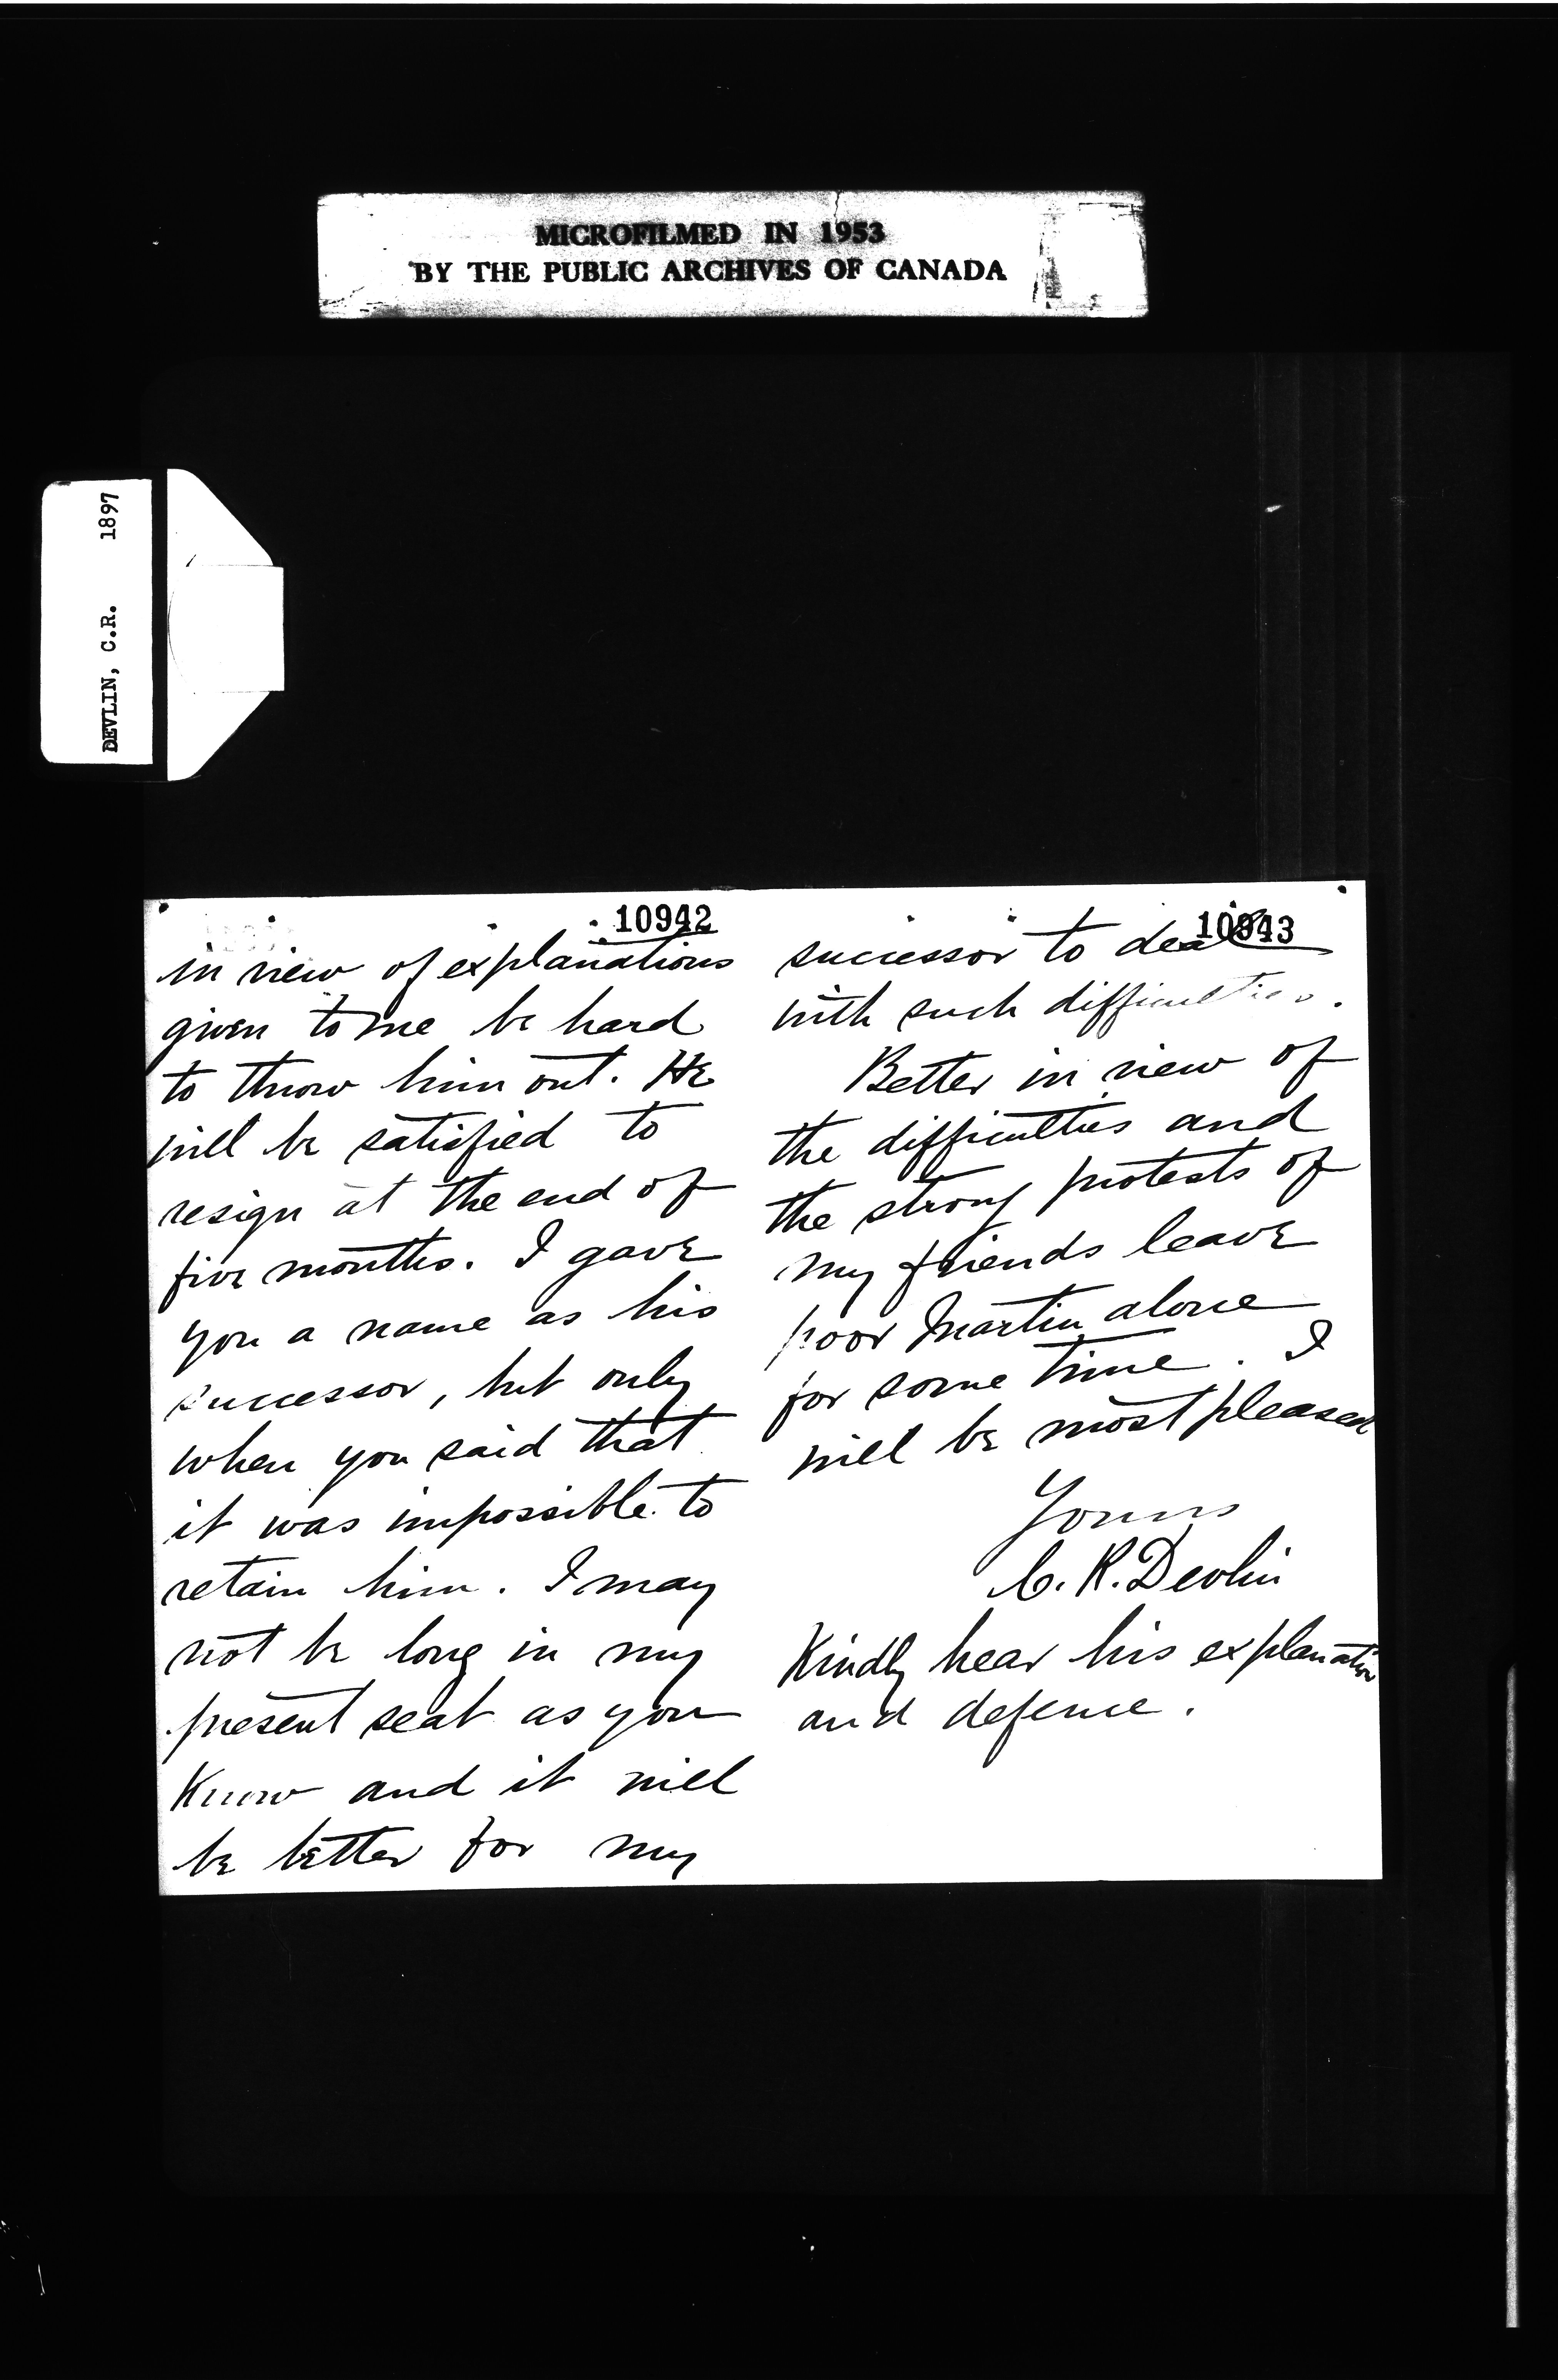 MICROFILMED IN 1953
BY THE PUBLIC ARCHIVES OF CANADA
DEVLIN, C.R. 1897
10942
in view of explanations
given to me be hard
to throw him out. He
will be satisfied to
resign at the end of
five months. I gave
you a name as his
successor, but only
when you said that
it was impossible to
retain him. I may
not be long in my
present seat as you
Know and it will
be better for my
10943
successor to deal
with such difficulties.
Better in view of
the difficulties and
the strong protests of
my friends leave
poor Martin alone
for some time. I
will be most pleased
Yours
C. R. Devlin
Kindly hear his explanation
and defence.